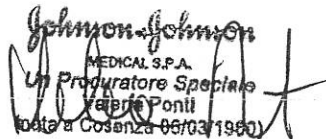 Johnson & Johnson
MEDICAL S.P.A.
Un Procuratore Speciale
Valeria Ponti
(nata a Cosenza 06/03/1980)